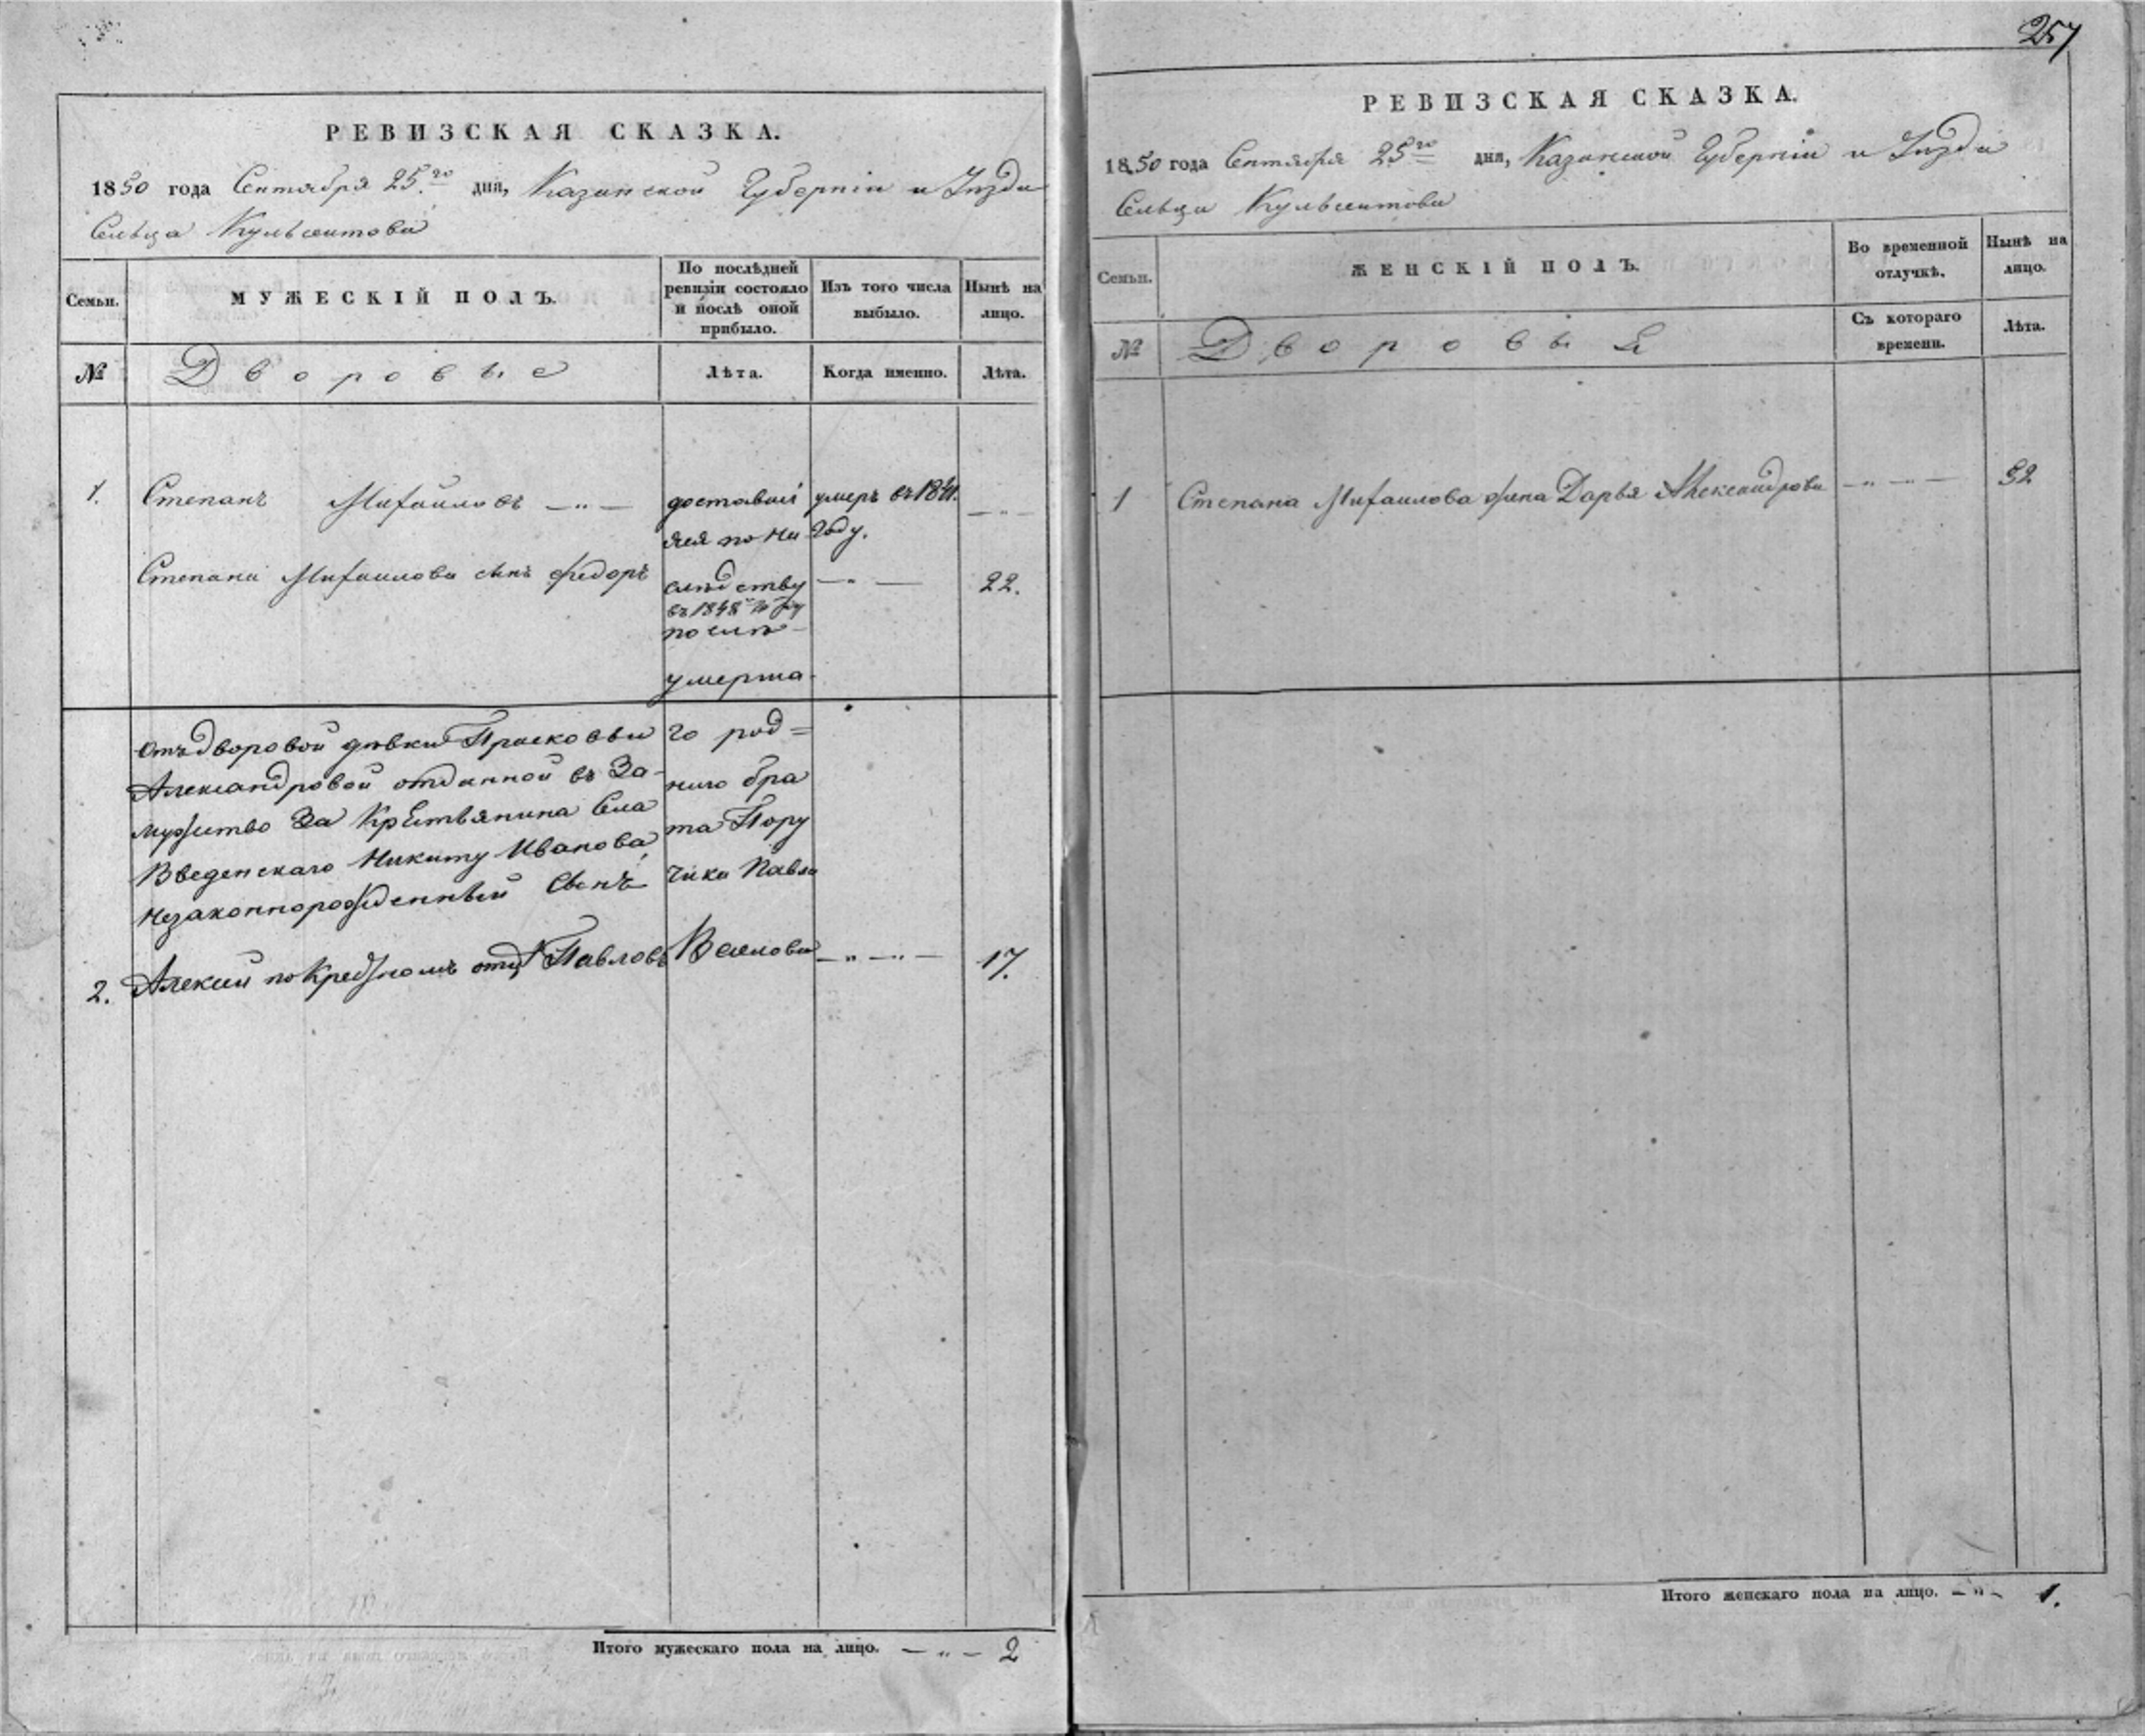 257
РЕВИЗСКАЯ СКАЗКА.
1850 года Сентября 25го дня, Казанской Губерніи и Уѣзда
Сельца Кульсеитова
Семьи.
МУЖЕСКІЙ ПОЛЪ.
По послѣдней ревизіи состояло и послѣ оной прибыло.
Изъ того числа выбыло.
Нынѣ на лицо.
№
Дворовые
Лѣта.
Когда именно.
Лѣта.
1. Степанъ Михайловъ — „ —
доставшi
яся по на
слѣдству
въ 1848 году
послѣ
умерша
умеръ въ 1841.
Году.
— „ —
Степана Михаилова сынъ Федоръ
— „ —
22.
Отъ дворовой дѣвки Прасковьи
Александровой отданной въ За-
мужство За Крѣстьянина Села
Введенскаго Никиту Иванова,
Незаконнорожденный Сынъ
2. Алексей по Крестномъ отцѣ Павловъ
го род=
ного бра
та Пору
чика Павла
— „ — „ —
17.
Итого мужескаго пола на лицо. — „ — 2
РЕВИЗСКАЯ СКАЗКА.
1850 года Сентября 25го дня, Казанской Губерніи и Уѣзда
Сельца Кульсеитова
Семьи.
ЖЕНСКІЙ ПОЛЪ.
Во временной отлучкѣ.
Нынѣ на лицо.
№
Дворовыя
Съ котораго времени.
Лѣта.
1 Степана Михаилова жена Дарья Александрова — „ — „ — 52
Итого женскаго пола на лицо. — „ — 1.